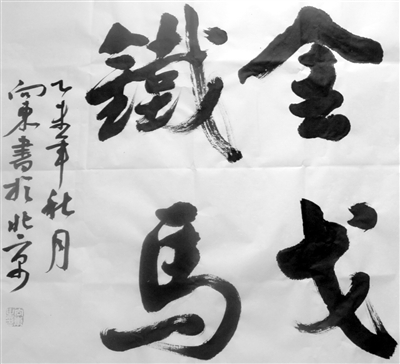 金戈
鐵馬
乙未年秋月
向東書於北京